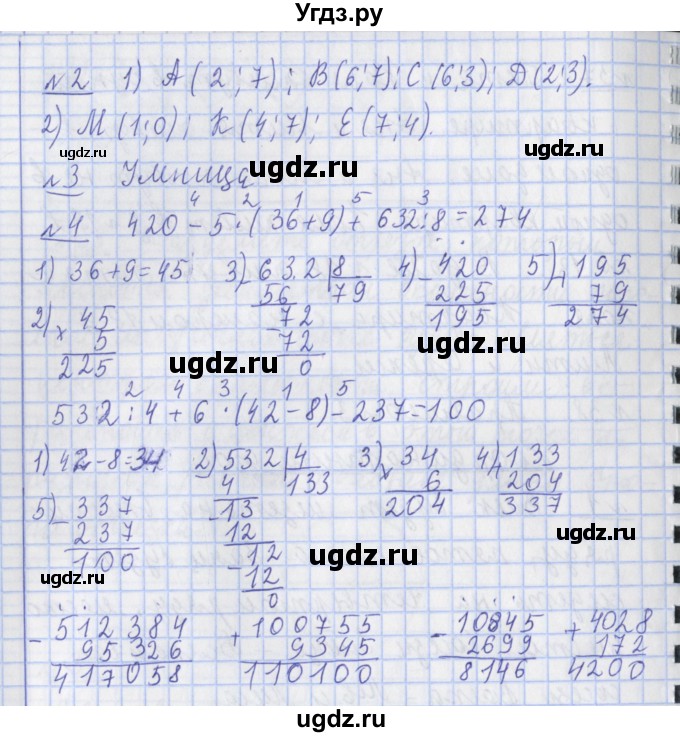 Угдз.ру
№2 1) A(2;7); B(6;7); C(6;3); D(2;3).
2) M(1;0); K(4;7); E(7;4).
ugdz.ru ugdz.ru
№3 Умница
ugdz.ru ugdz.ru
4 2 1 5 3
№4 420 - 5 · (36+9) + 632:8 = 274
1) 36+9=45 3) 632 | 8 4) 420 5) 195
- 56 79 - 225 + 79
72 195 274
- 72
0
2) 45
× 5
225
ugdz.ru ugdz.ru
2 4 3 1 5
532 : 4 + 6 · (42-8) - 237 = 100
1) 42-8=34 2) 532 | 4 3) 34 4) 133
4 133 × 6 + 204
- 13 204 337
12
- 12
12
0
5) 337
- 237
100
ugdz.ru ugdz.ru
ugdz.ru ugdz.ru
- 512384 + 100755 - 10845 + 4028
95326 9345 2699 172
417058 110100 8146 4200
ugdz.ru ugdz.ru
ugdz.ru